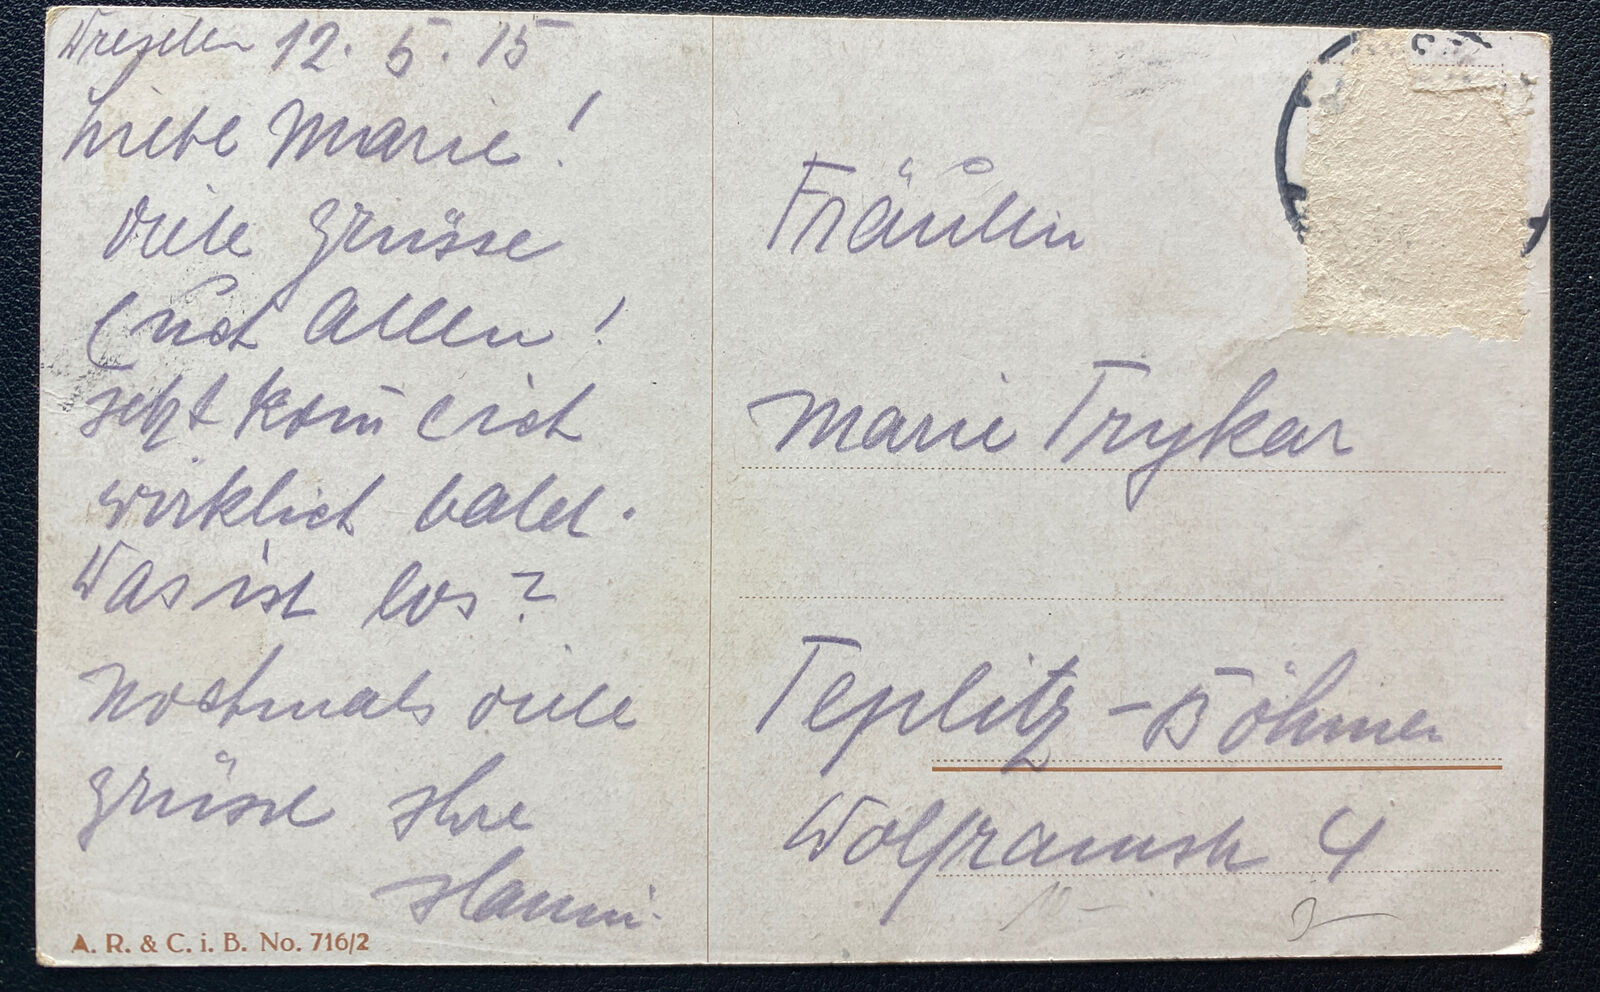 Dresden 12. 5. 15
Liebe Marie!
Viele Grüsse
Euch Allen!
Jetzt kom̄ ich
wirklich bald.
Was ist los?
Nochmals viele
Grüsse Ihre
Hanni.
A. R. & C. i. B. No. 716/2
Fräulein
Marie Trykar
Teplitz - Böhmen
Wolframstr 4